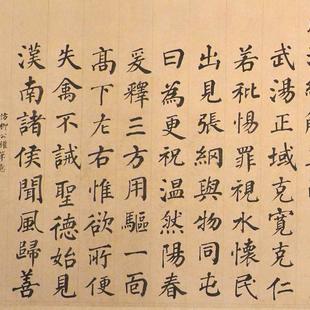 武湯正域克寬克仁
若枇惕罪視水懷民
出見張網與物同屯
曰為更祝温然陽春
爰釋三方用驅一靣
髙下左右惟欲所便
失禽不誡聖德始見
漢南諸侯聞風歸善
仿柳公權筆意